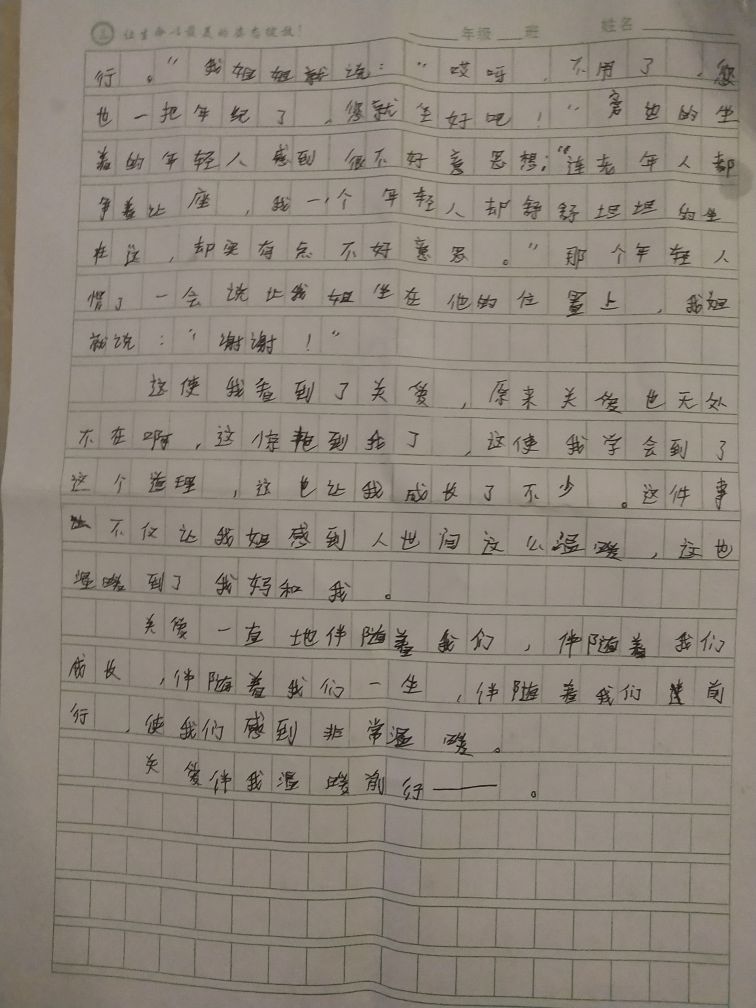 让生命以最美的姿态绽放！ 年级 班 姓名
行。”我姐姐就说：“哎呀，不用了，您
也一把年纪了，您就坐好吧！”旁边的坐
着的年轻人感到很不好意思想：“连老年人都
争着让座，我一个年轻人却舒舒坦坦的坐
在这，却实有点不好意思。”那个年轻人
愣了一会说让我姐坐在他的位置上，我姐
就说：“谢谢！”
这使我看到了关爱，原来关爱也无处
不在啊，这惊艳到我了，这使我学会到了
这个道理，这也让我成长了不少。这件事
不仅让我姐感到人世间这么温暖，这也
温暖到了我妈和我。
关爱一直地伴随着我们，伴随着我们
成长，伴随着我们一生，伴随着我们前
行，使我们感到非常温暖。
关爱伴我温暖前行——。